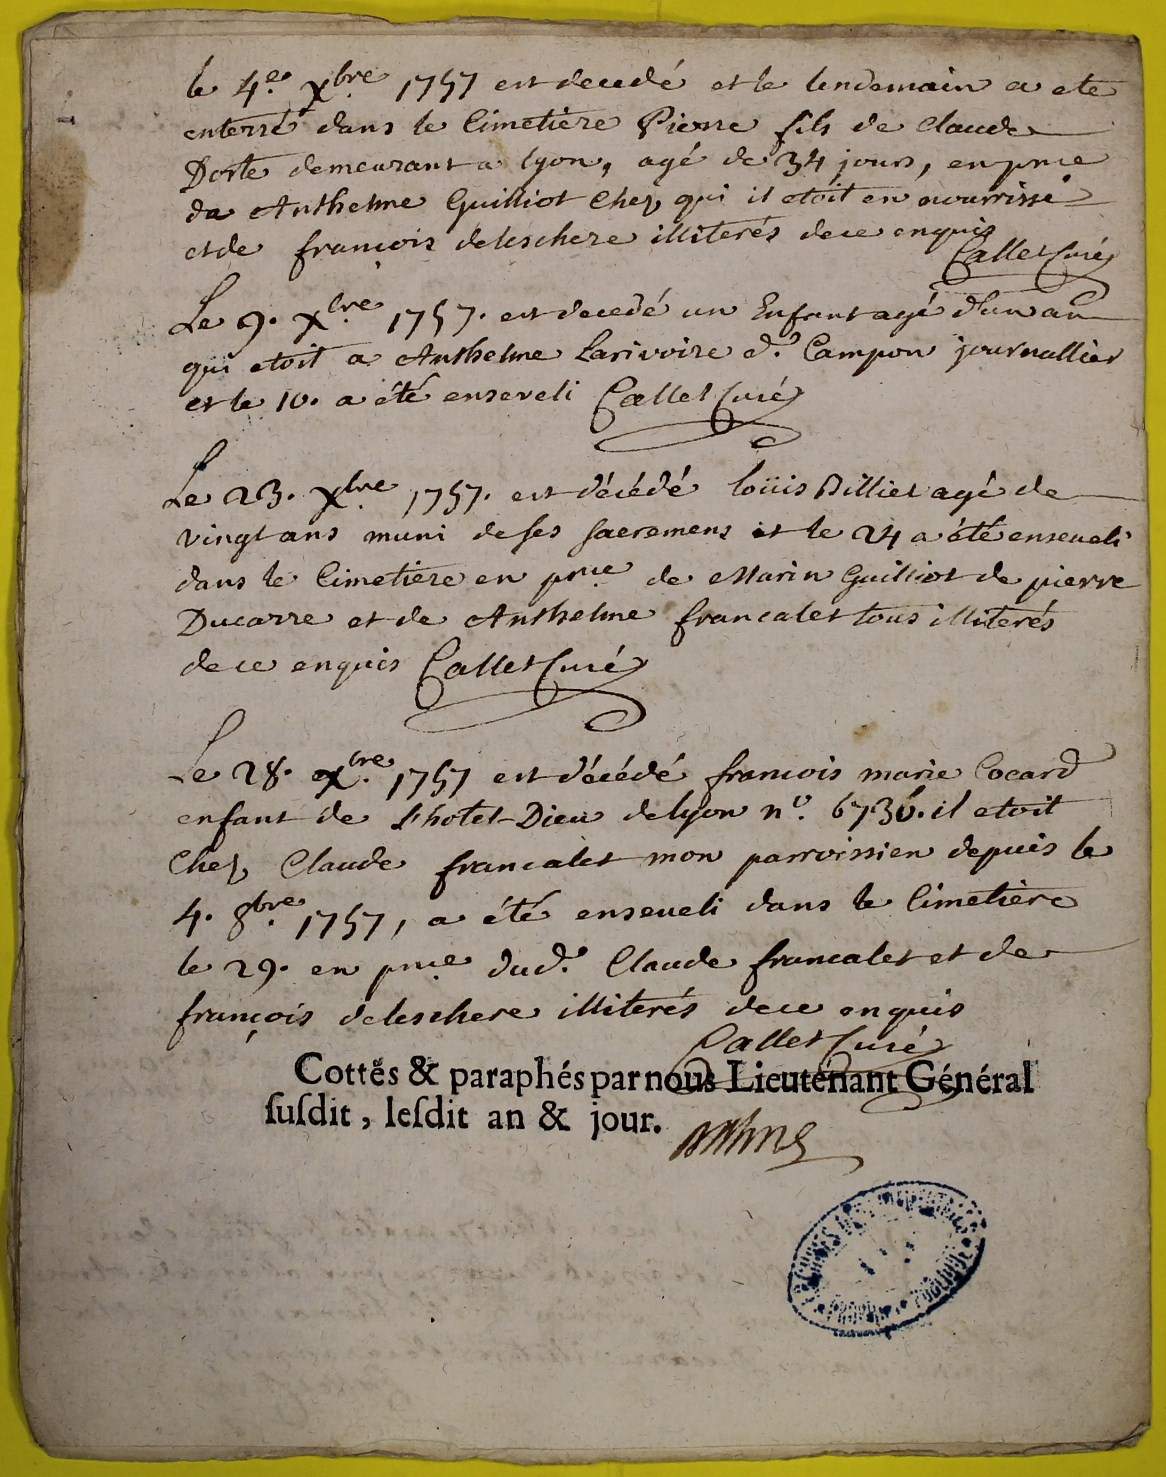 le 4e. Xbre 1757 est decedé et le lendemain a ete
enterré dans le Cimetiere Pierre fils de Claude
Dorte demeurant a lyon, agé de 34 jours, en pnce
de Anthelme Guilliot Chez qui il etoit en nourrisse
et de françois deleschere illiterés de ce enquis
Callet Curé
Le 9. Xbre 1757. est decedé un Enfant agé d'un an
qui etoit a Anthelme Larivoire d. Campon journallier
et le 10. a été enseveli Callet Curé
Le 23. Xbre 1757. est décédé loüis Billiet agé de
vingt ans muni de ses sacremens et le 24 a été enseveli
dans le Cimetiere en pnce de Marin Guilliot de pierre
Ducarre et de Anthelme francalet tous illiterés
de ce enquis Callet Curé
Le 28. Xbre. 1757 est décédé francois marie Cocard
enfant de L'hotel-Dieu de lyon n°. 6736. il etoit
Chez Claude francalet mon parroissien depuis le
4. 8bre. 1757, a été enseveli dans le Cimetière
le 29. en pnce dud. Claude francalet et de
françois deleschere illiterés de ce enquis
Callet Curé
Cottés & paraphés par nous Lieutenant Général
susdit, lesdit an & jour.